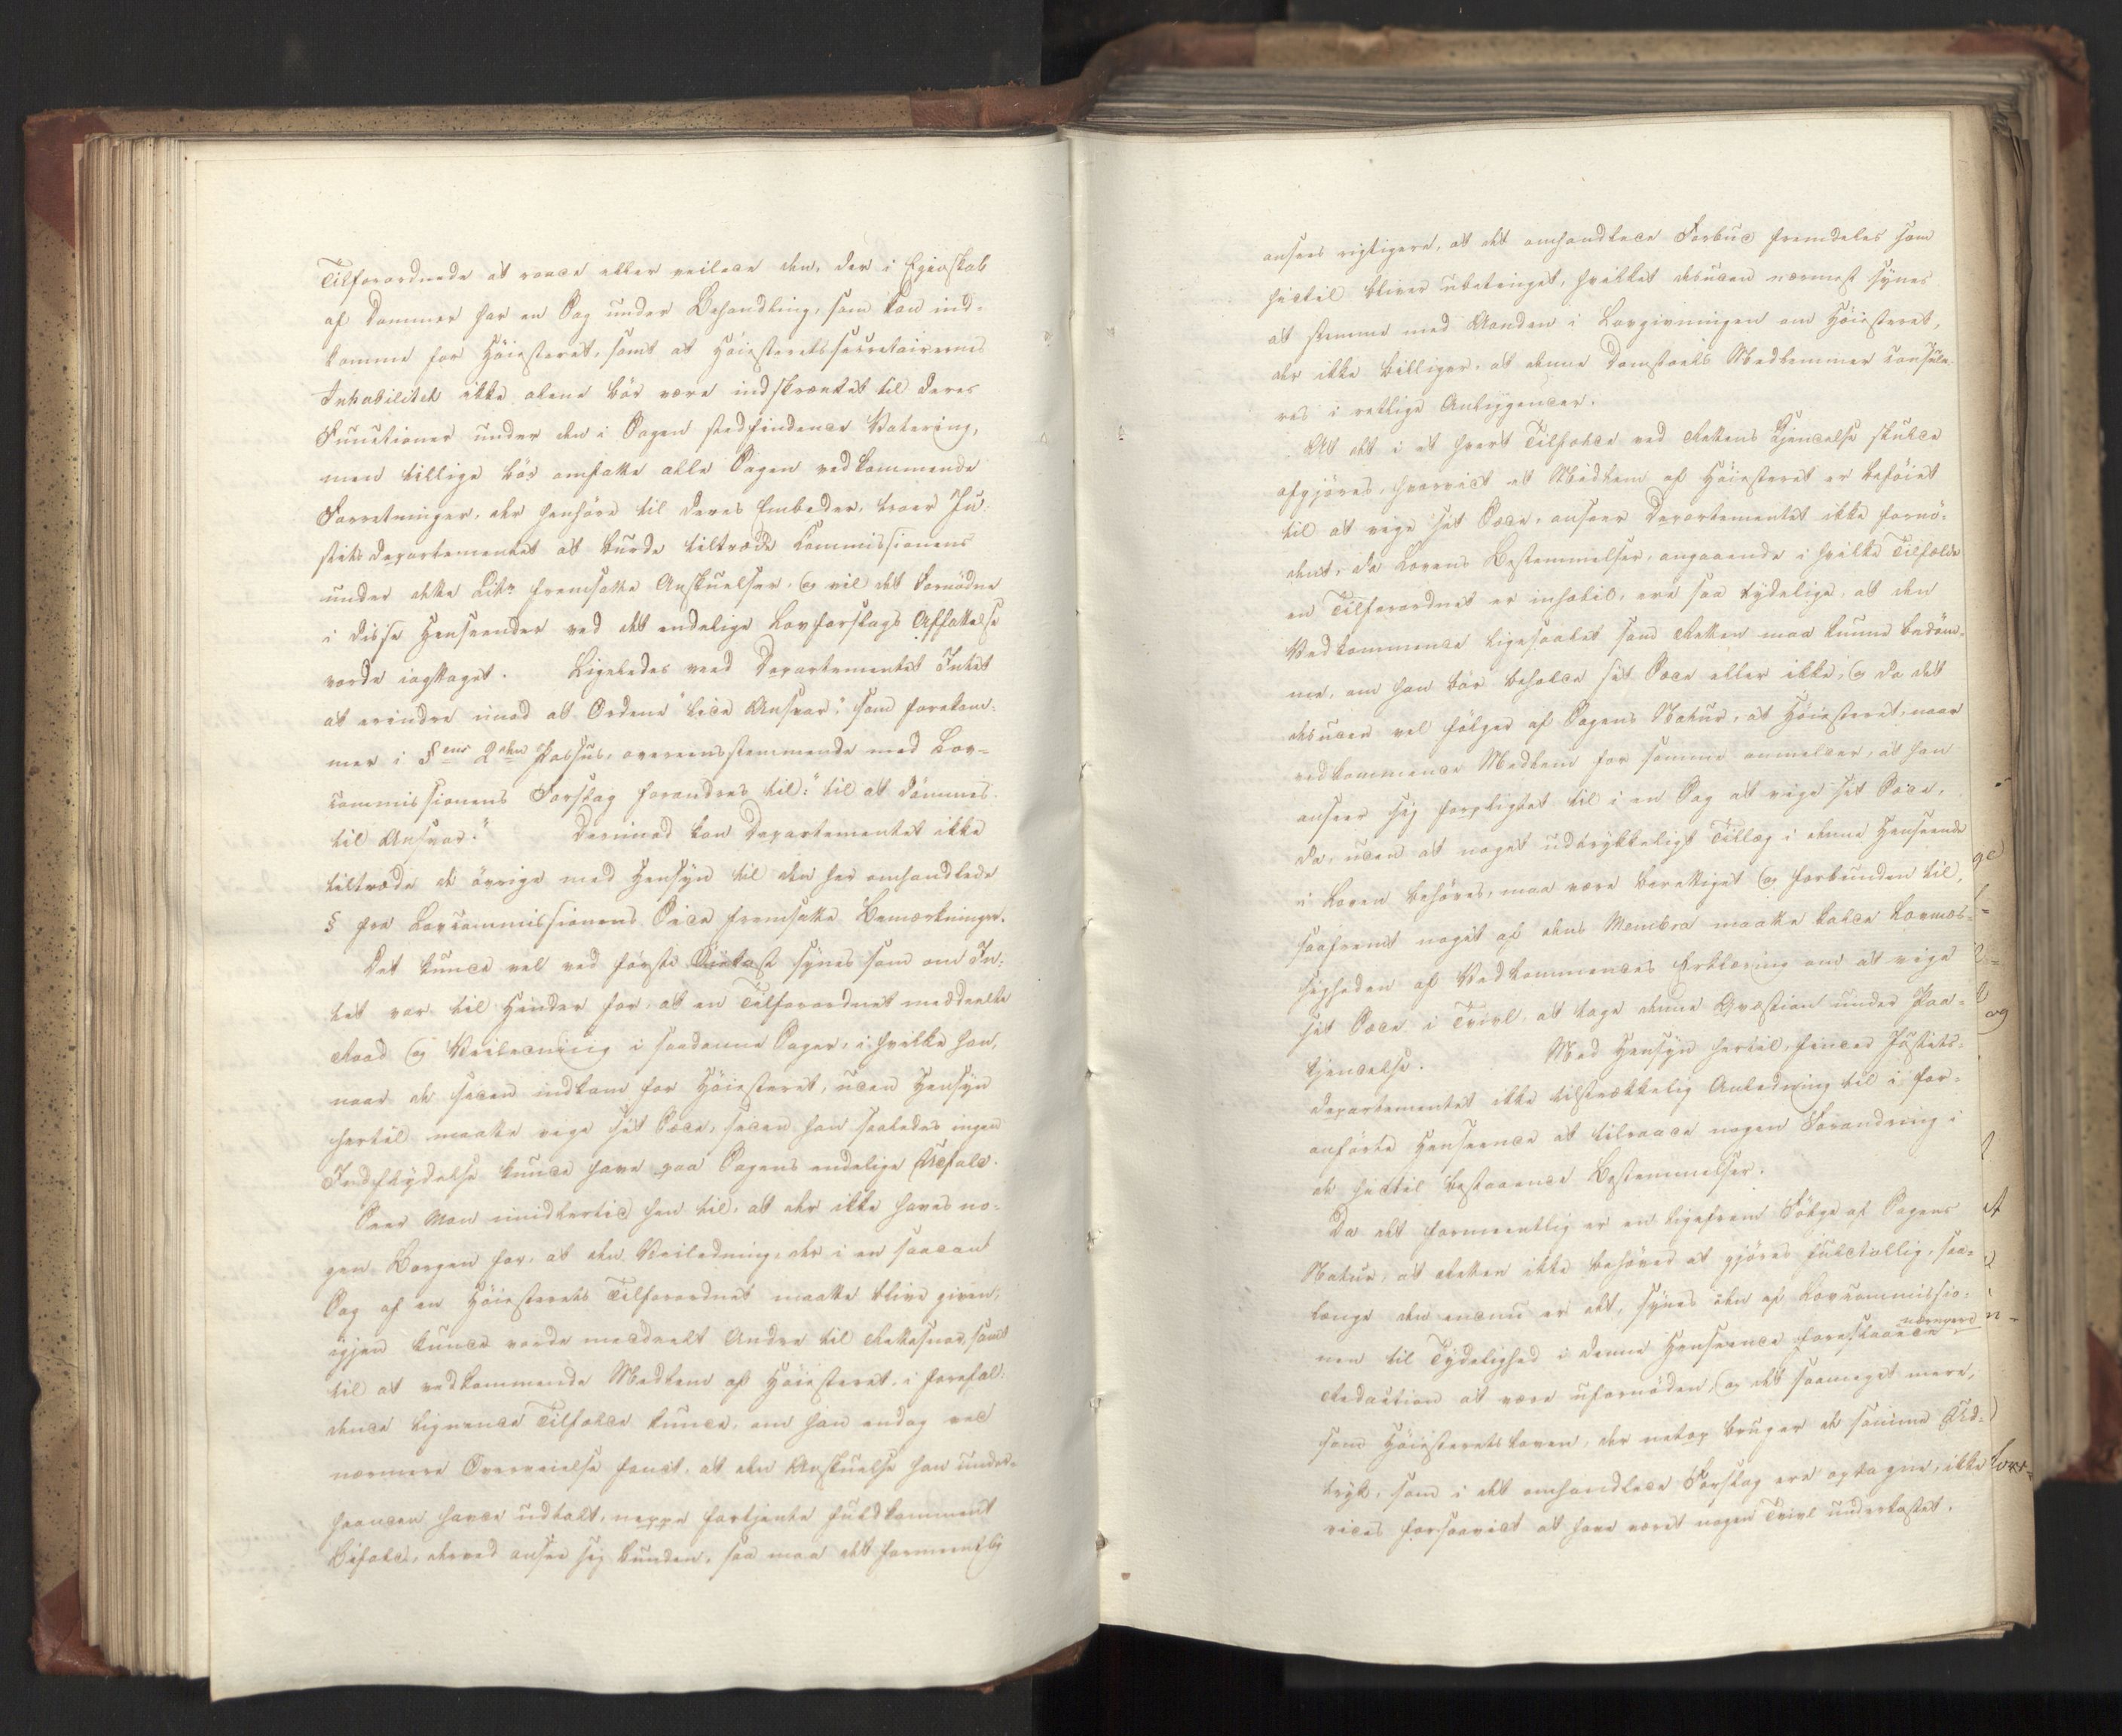 Tilforordnede at raade eller veilede den, der i Egenskab
af Dommer har en Sag under Behandling, som kan ind-
komme for Høiesteret, samt at Høiesteretssecretairernes
Inhabilitet ikke alene bør være indskrænket til deres
Functioner under den i Sagen stedfindende Votering,
men tillige bør omfatte alle Sagen vedkommende
Forretninger, der henhøre til deres Embeder, troer Ju-
stitsdepartementet at burde tiltræde Commissionens
under dette Litr. fremsatte Anskuelser, og vil det Fornødne
i disse Henseender ved det endelige Lovforslags Affattelse
vorde iagttaget. Ligeledes veed Departementet Intet
at erindre imod at Ordene "lide Ansvar" som forekom-
mer i §ens 2den Passus, overeensstemmende med Lov-
commissionens Forslag forandres til: "til at dømmes
til Ansvar." Derimod kan Departementet ikke
tiltræde de øvrige med Hensyn til den her omhandlede
§ fra Lovcommissionens Side fremsatte Bemærkninger.
Det kunde vel ved første Øiekast synes som om In-
tet var til Hinder for, at en Tilforordnet meddeelte
Raad og Veiledning i saadanne Sager, i hvilke han,
naar de siden indkom for Høiesteret, uden Hensyn
hertil maatte vige sit Sæde, siden han saaledes ingen
Indflydelse kunde have paa Sagens endelige Udfald.
Seer Man imidlertid hen til, at der ikke haves no-
gen Borgen for, at den Veiledning, der i en saadan
Sag af en Høiesterets Tilforordnet maatte blive given,
igjen kunde vorde meddeelt Andre til Rettesnor, samt
til at vedkommende Medlem af Høiesteret i forefal-
dende lignende Tilfælde kunde, om han endog ved
nærmere Overveielse fandt, at den Anskuelse han under-
haanden havde udtalt, neppe fortjente fuldkomment
Bifald, derved ansee sig bunden, saa maa det formeentlig
ansees rigtigere, at det omhandlede Forbud fremdeles som
hidtil bliver ubetinget, hvilket desuden nærmest synes
at stemme med Aanden i Lovgivningen om Høiesteret,
der ikke billiger, at denne Domstoels Medlemmer consule-
res i retlige Anliggender.
At det i et hvert Tilfælde ved Rettens Kjendelse skulde
afgjøres, hvorvidt et Medlem af Høiesteret er beføiet
til at vige sit Sæde, anseer Departementet ikke fornø-
dent, da Lovens Bestemmelser, angaaende i hvilke Tilfælde
en Tilforordnet er inhabil, ere saa tydelige, at den
Vedkommende ligesaalet som Retten maa kunne bedøm-
me, om han bør beholde sit Sæde eller ikke, og da det
desuden vel følger af Sagens Natur, at Høiesteret, naar
vedkommende Medlem for samme anmelder, at han
anseer sig forpligtet til i en Sag at vige sit Sæde,
da, uden at noget udtrykkeligt Tillæg i denne Henseende
i Loven behøves, maa være berettiget og forbunden til,
saafremt noget af dens Membra maatte kalde Lovmæs-
sigheden af Vedkommendes Erklæring om at vige
sit Sæde i Tvivl, at tage denne Qvæstion under Paa-
kjendelse. Med Hensyn hertil finder Justits-
departementet ikke tilstrækkelig Anledning til i for-
anførte Henseende at tilraade nogen Forandring i
de hidtil bestaaende Bestemmelser.
Da det formeentlig er en ligefrem Følge af Sagens
Natur, at Retten ikke behøver at gjøres fuldtallig, saa-
længe den endnu er det, synes den af Lovcommissio-
nen til Tydelighed i denne Henseende foreslaaede nærmere
Redaction at være ufornøden, og det saameget mere,
som Høiesteretsloven, der netop bruger de samme Ud-
tryk, som i det omhandlede Forslag ere optagne, ikke
vides forsaavidt at have været nogen Tvivl underkastet.